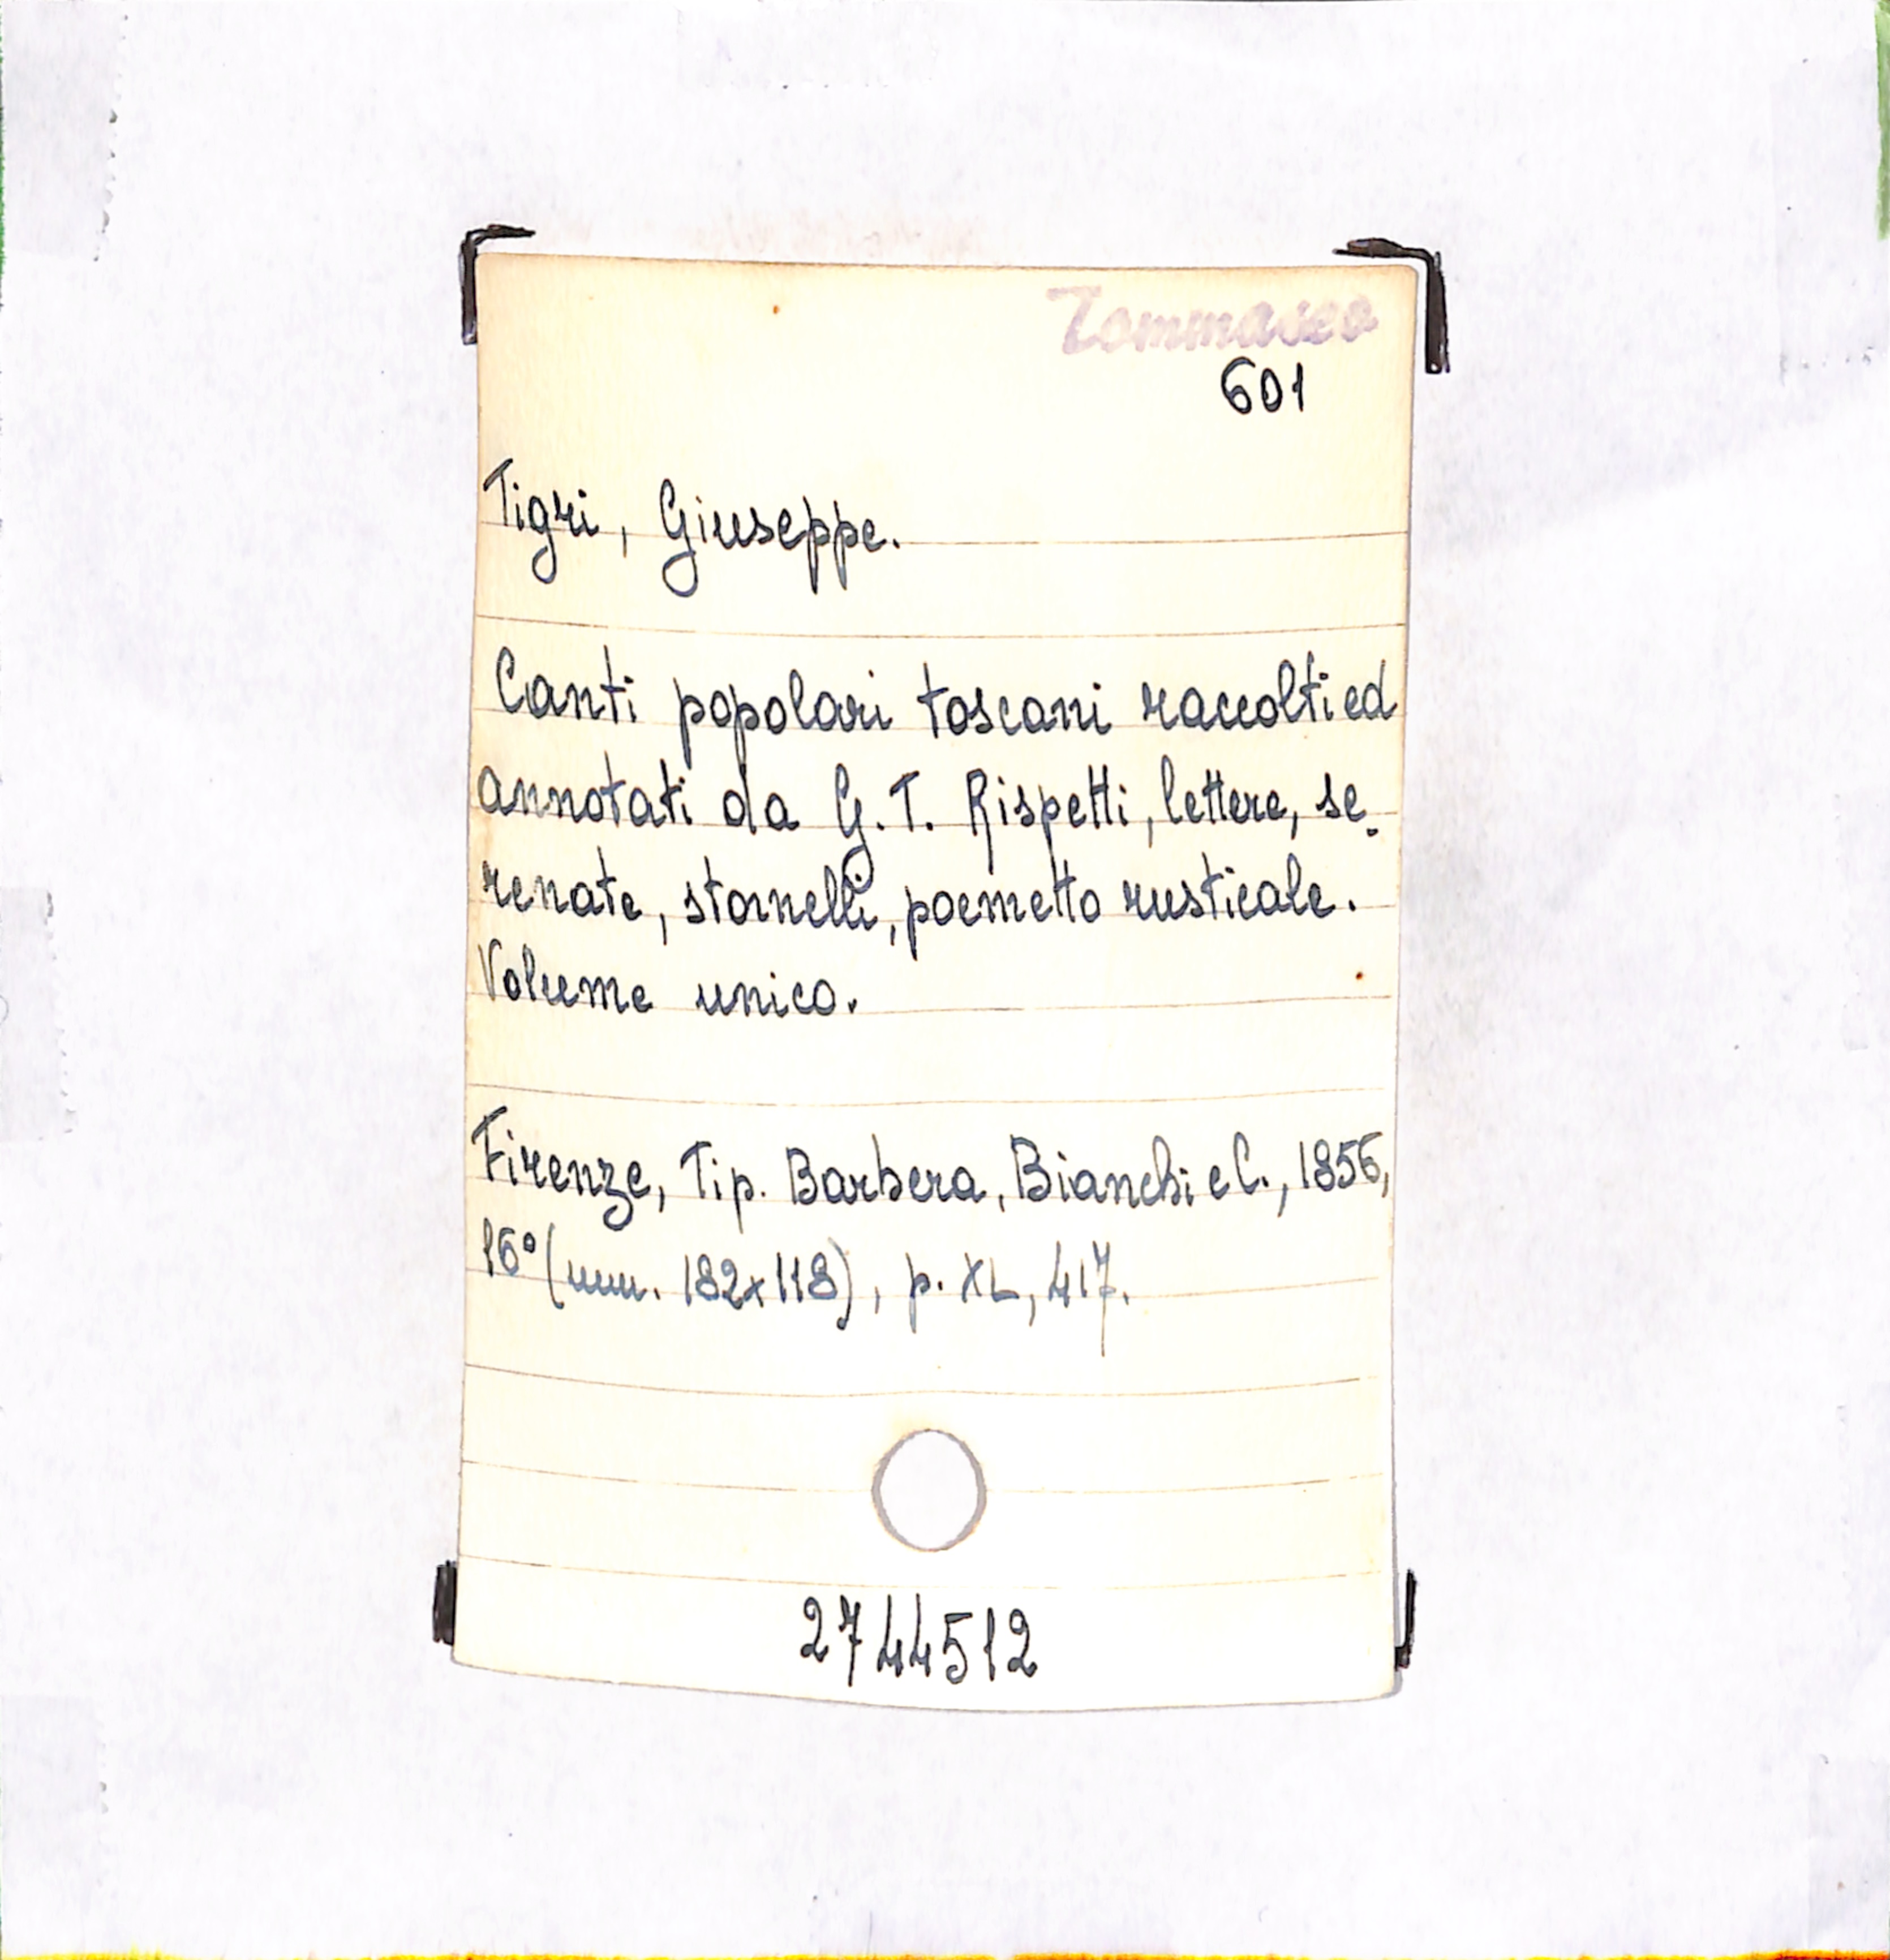 Tommaseo
601
Tigri, Giuseppe.
Canti popolari toscani raccolti ed
annotati da G. T. Rispetti, lettere, se-
renate, stornelli, poemetto rusticale.
Volume unico.
Firenze, Tip. Barbera, Bianchi e C., 1856,
16° (mm. 182x118), p. XL, 417.
2744512